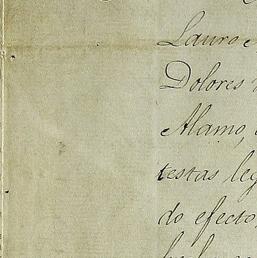 Lauro
Dolores
Alamo,
testas leg
do efecto